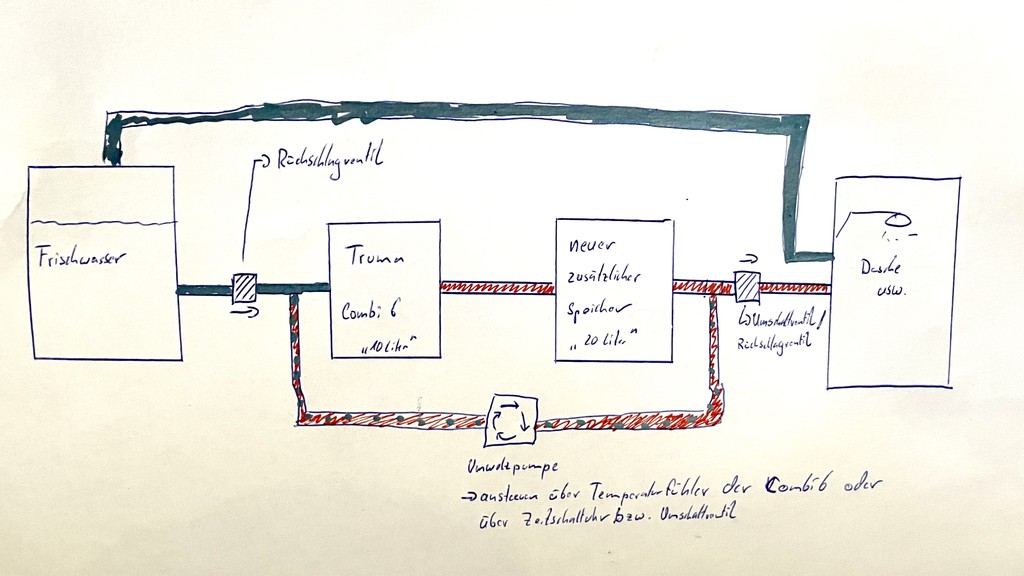 Rückschlagventil
Frischwasser
Truma
Combi 6
„10 Liter"
neuer
zusätzlicher
Speicher
„20 Liter"
Dusche
usw.
↳ Umschaltventil/
Rückschlagventil
Umwälzpumpe
→ ansteuern über Temperaturfühler der Combi6 oder
über Zeitschaltuhr bzw. Umschaltventil